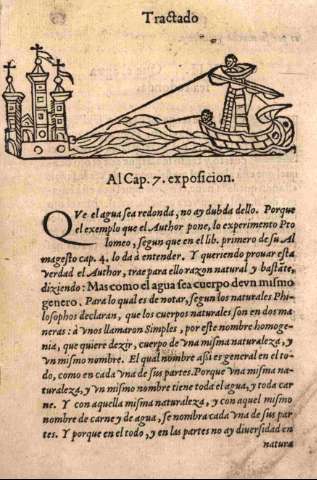 Tractado
Al Cap. 7. exposicion.
QVe el agua sea redonda, no ay dubda dello. Porque
el exemplo que el Author pone, lo experimento Pto
lomeo, segun que en el lib. primero de su Al
magesto cap. 4. lo da à entender. Y queriendo prouar esta
verdad el Author, trae para ello razon natural y bastãte,
diziendo: Mas como el agua sea cuerpo de vn mismo
genero. Para lo qual es de notar, segun los naturales Phi-
losophos declaran, que los cuerpos naturales son en dos ma
neras: à vnos llamaron Simples, por este nombre homoge-
nia, que quiere dezir, cuerpo de vna misma naturaleza, y
vn mismo nombre. El qual nombre assi es general en el to-
do, como en cada vna de sus partes. Porque vna misma na-
turaleza, y vn mismo nombre tiene toda el agua, y toda car
ne. Y con aquella misma naturaleza, y con aquel mismo
nombre de carne y de agua, se nombra cada vna de sus par
tes. Y porque en el todo, y en las partes no ay diuersidad en
natura